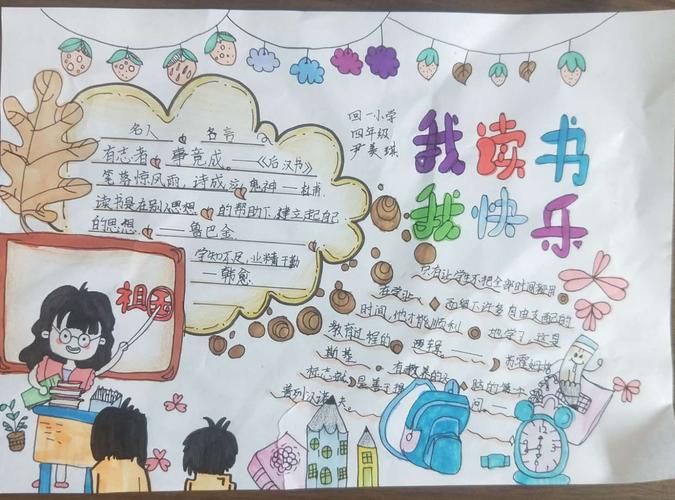 名人 名言
有志者,事竟成。——《后汉书》
笔落惊风雨,诗成泣鬼神——杜甫
读书是在别人思想的帮助下,建立起自己
的思想。——鲁巴金
学如不足,业精于勤
——韩愈
回一小学
四年级
尹美琪
我读书
我快乐
祖国
只有让学生不把全部时间都用
在学业,而留下许多自由支配的
时间,他才能顺利地学习,这是
教育过程的逻辑——苏霍姆林
斯基